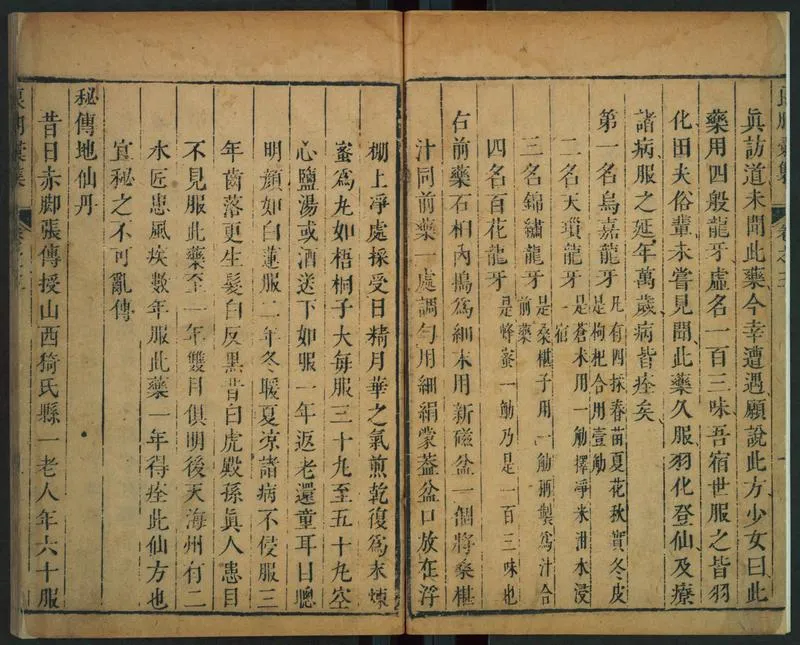 真訪道未聞此藥今幸遭遇願說此方少女曰此
藥用四般龍牙虛名一百三味吾宿世服之皆羽
化田夫俗輩未嘗見聞此藥久服羽化登仙及療
諸病服之延年萬歲病皆痊矣
第一名烏嘉龍牙 凡有四採春苗夏花秋實冬皮
是枸杞合用壹觔
二名天瓊龍牙 是蒼朮用一觔擇淨米泔水浸
一宿
三名錦繡龍牙 是桑椹子用一觔製為汁合
前藥
四名百花龍牙 是蜂蜜一觔乃是一百三味也
右前藥石相內搗為細末用新磁盆一個將桑椹
汁同前藥一處調勻用細絹蒙蓋盆口放在浮
棚上淨處採受日精月華之氣煎乾復為末煉
蜜為丸如梧桐子大每服三十丸至五十丸空
心鹽湯或酒送下如服一年返老還童耳目聰
明顏如白蓮服二年冬暖夏涼諸病不侵服三
年齒落更生髮白反黑昔白虎殿孫真人患目
不見服此藥至一年雙目俱明後天海州有二
水匠患風疾數年服此藥一年得痊此仙方也
宜秘之不可亂傳
秘傳地仙丹
昔日赤腳張傳授山西猗氏縣一老人年六十服